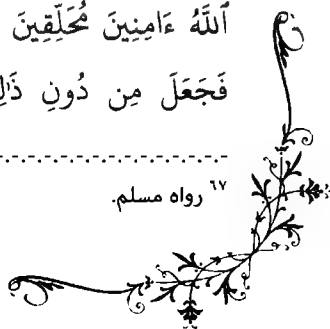 ٱللَّهُ ءَامِنِينَ مُحَلِّقِينَ
فَجَعَلَ مِن دُونِ
٦٧ رواه مسلم.